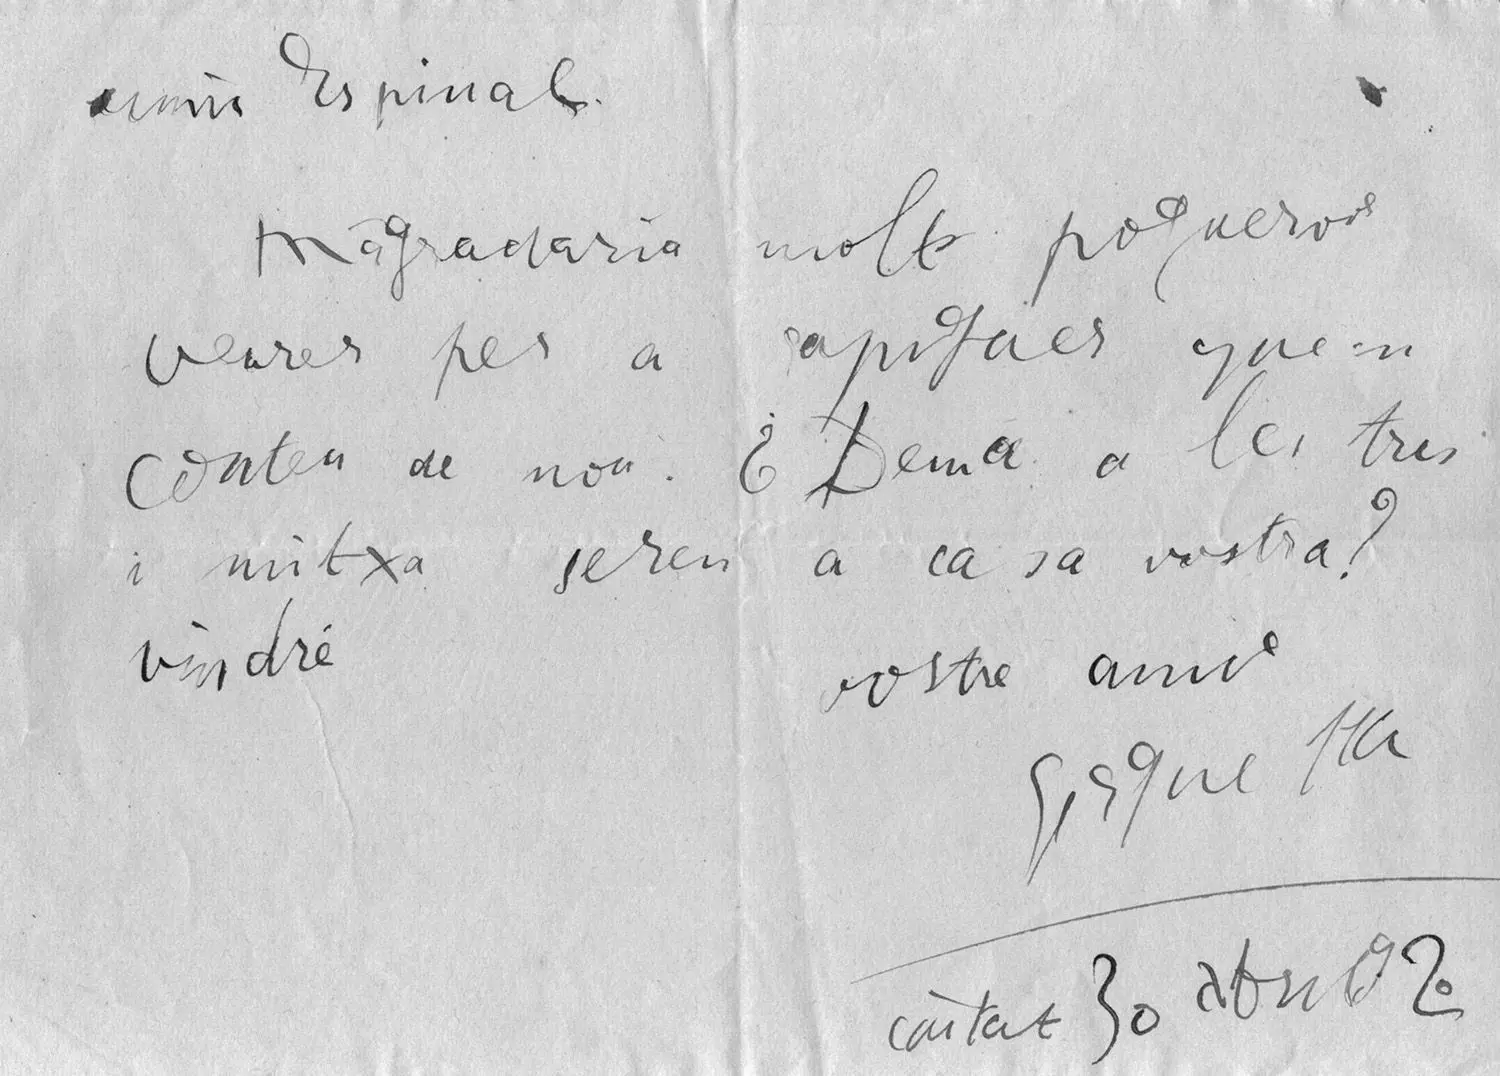 amic Espinal.
M'agradaria molt poguervos
veurer per a sapiguer que-m
conteu de nou. ¿Demà a les tres
i mitxa sereu a casa vostra?
vindré
vostre amic
ciutat 30 abril 92